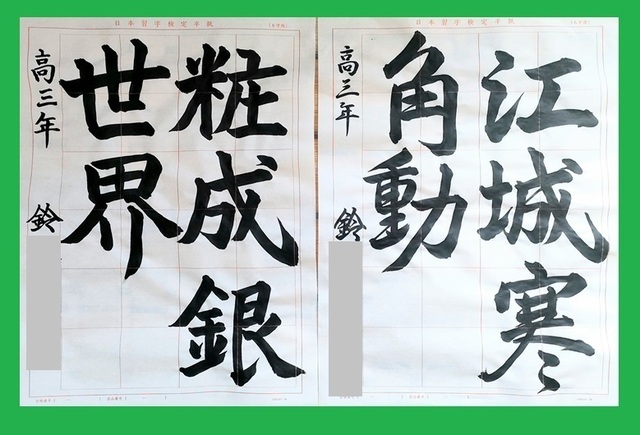 日本習字検定半紙
江城寒
角動
高三年 鈴
日本習字検定半紙
粧成銀
世界
高三年 鈴